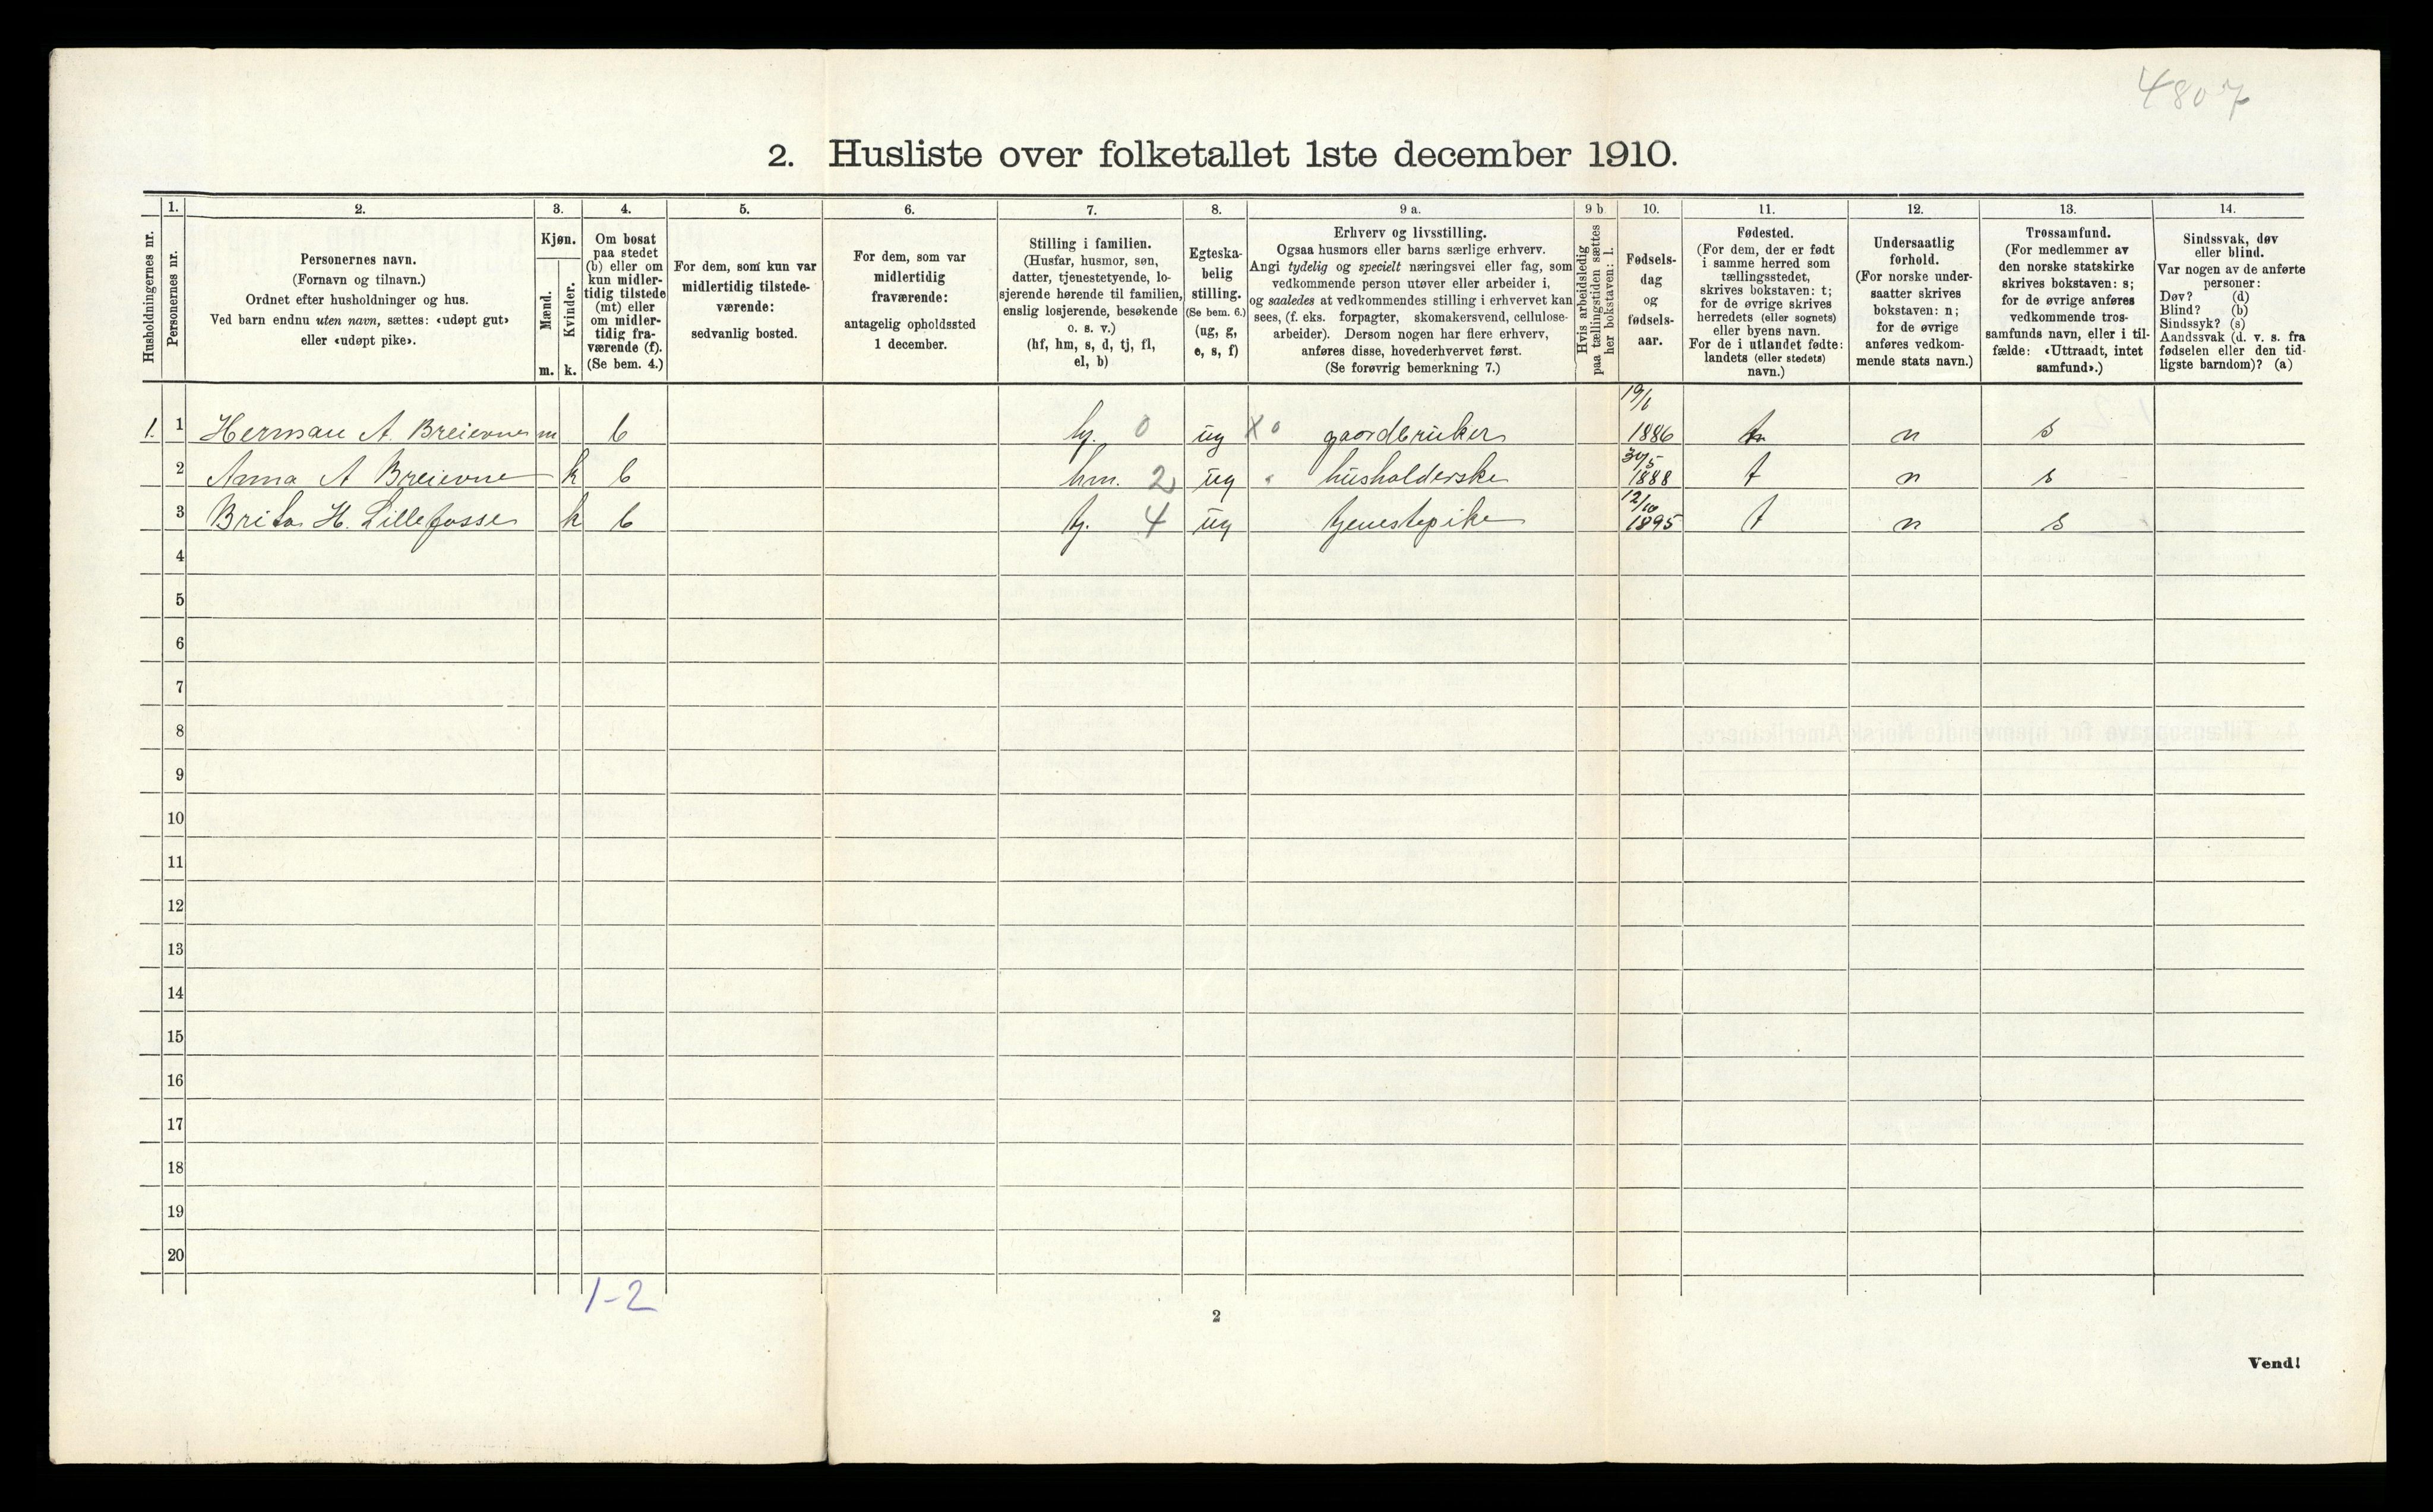 4807
2. Husliste over folketallet 1ste december 1910.
Husholdningernes nr.
1.
Personernes nr.
2.
Personernes navn.
(Fornavn og tilnavn.)
Ordnet efter husholdninger og hus.
Ved barn endnu uten navn, sættes: «udøpt gut»
eller «udøpt pike».
3.
Kjøn.
Mænd.
Kvinder.
m.
k.
4.
Om bosat
paa stedet
(b) eller om
kun midler-
tidig tilstede
(mt) eller
om midler-
tidig fra-
værende (f).
(Se bem. 4.)
5.
For dem, som kun var
midlertidig tilstede-
værende:
sedvanlig bosted.
6.
For dem, som var
midlertidig
fraværende:
antagelig opholdssted
1 december.
7.
Stilling i familien.
(Husfar, husmor, søn,
datter, tjenestetyende, lo-
sjerende hørende til familien,
enslig losjerende, besøkende
o. s. v.)
(hf, hm, s, d, tj, fl,
el, b)
8.
Egteska-
belig
stilling.
(Se bem. 6.)
(ug, g,
e, s, f)
9 a.
Erhverv og livsstilling.
Ogsaa husmors eller barns særlige erhverv.
Angi tydelig og specielt næringsvei eller fag, som
vedkommende person utøver eller arbeider i,
og saaledes at vedkommendes stilling i erhvervet kan
sees, (f. eks. forpagter, skomakersvend, cellulose-
arbeider). Dersom nogen har flere erhverv,
anføres disse, hovederhvervet først.
(Se forøvrig bemerkning 7.)
9 b
Hvis arbeidsledig
paa tællingstiden sættes
her bokstaven: l.
10.
Fødsels-
dag
og
fødsels-
aar.
11.
Fødested.
(For dem, der er født
i samme herred som
tællingsstedet,
skrives bokstaven: t;
for de øvrige skrives
herredets (eller sognets)
eller byens navn.
For de i utlandet fødte:
landets (eller stedets)
navn.)
12.
Undersaatlig
forhold.
(For norske under-
saatter skrives
bokstaven: n;
for de øvrige
anføres vedkom-
mende stats navn.)
13.
Trossamfund.
(For medlemmer av
den norske statskirke
skrives bokstaven: s;
for de øvrige anføres
vedkommende tros-
samfunds navn, eller i til-
fælde: «Uttraadt, intet
samfund».)
14.
Sindssvak, døv
eller blind.
Var nogen av de anførte
personer:
Døv? (d)
Blind? (b)
Sindssyk? (s)
Aandssvak (d. v. s. fra
fødselen eller den tid-
ligste barndom)? (a)
1. 1 Herman A. Breievne m b 0 ug X 0 gaardbruker 1886 n s
2 Anna A Breievne k b hm. 2 ug husholderske 30/5 1888 t n s
3 Brita H. Lillefosse k b tj. 4 ug tjenestepike 12/10 1895 t n s
4
5
6
7
8
9
10
11
12
13
14
15
16
17
18
19
20
1-2
2
Vend!